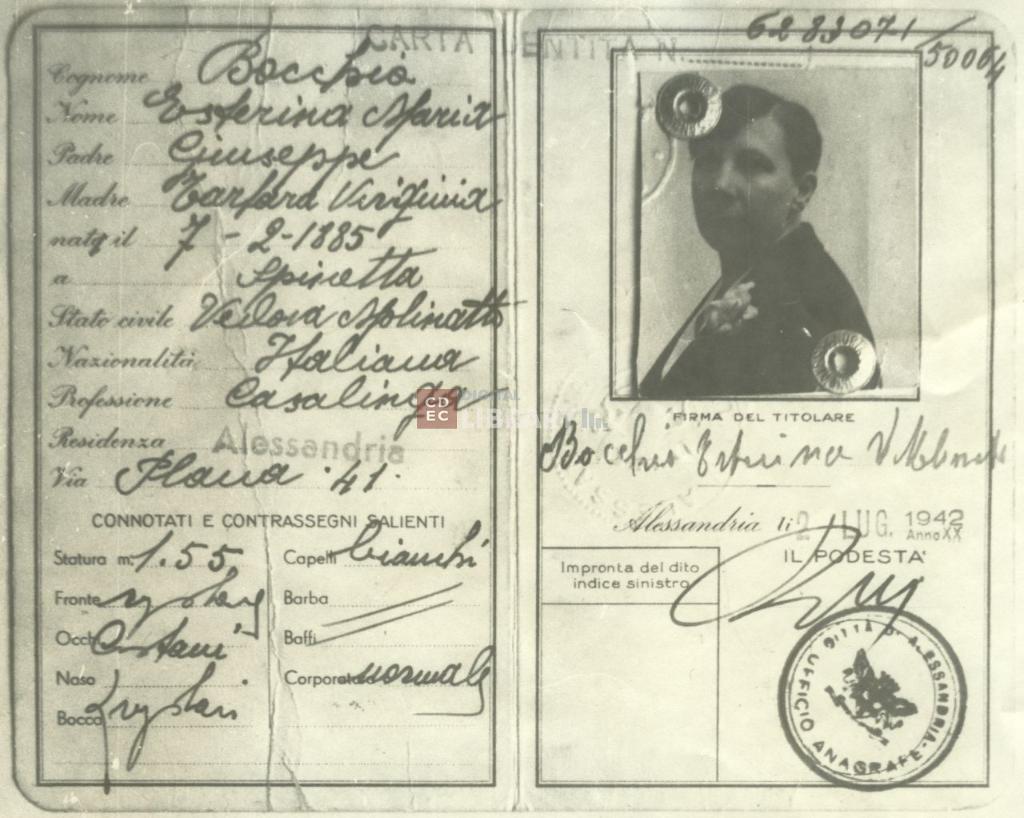 Cognome Bocchio
Nome Esterina Maria
Padre Giuseppe
Madre Virginia
nato il 7 - 2 - 1885
a Spinetta
Stato civile Vedova Molinatto
Nazionalità Italiana
Professione Casalinga
Residenza Alessandria
Via Plana 41.
CONNOTATI E CONTRASSEGNI SALIENTI
Statura m. 1.55
Fronte
Occhi Castani
Naso
Bocca
Capelli bianchi
Barba
Baffi
Corporatura normale
CDEC DIGITAL LIBRARY
CARTA IDENTITÀ N. 6283071/50064
FIRMA DEL TITOLARE
Bocchio Esterina V Molinatto
Alessandria li 2 LUG. 1942
Anno XX
IL PODESTA'
Impronta del dito
indice sinistro
CITTÀ DI ALESSANDRIA - UFFICIO ANAGRAFE -